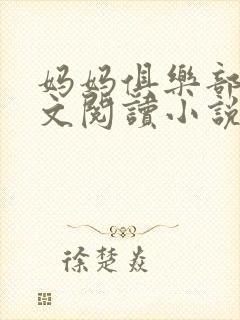 妈妈俱樂部
文閱讀小說
徐楚焱